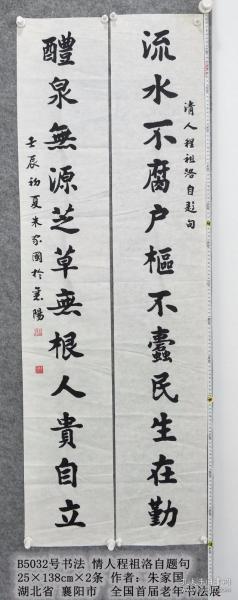 流水不腐户樞不蠹民生在勤
清人程祖洛自題句
醴泉無源芝草無根人貴自立
壬辰初夏朱家國於襄陽
B5032号书法 情人程祖洛自题句
25×138cm×2条 作者：朱家国
湖北省 襄阳市 全国首届老年书法展